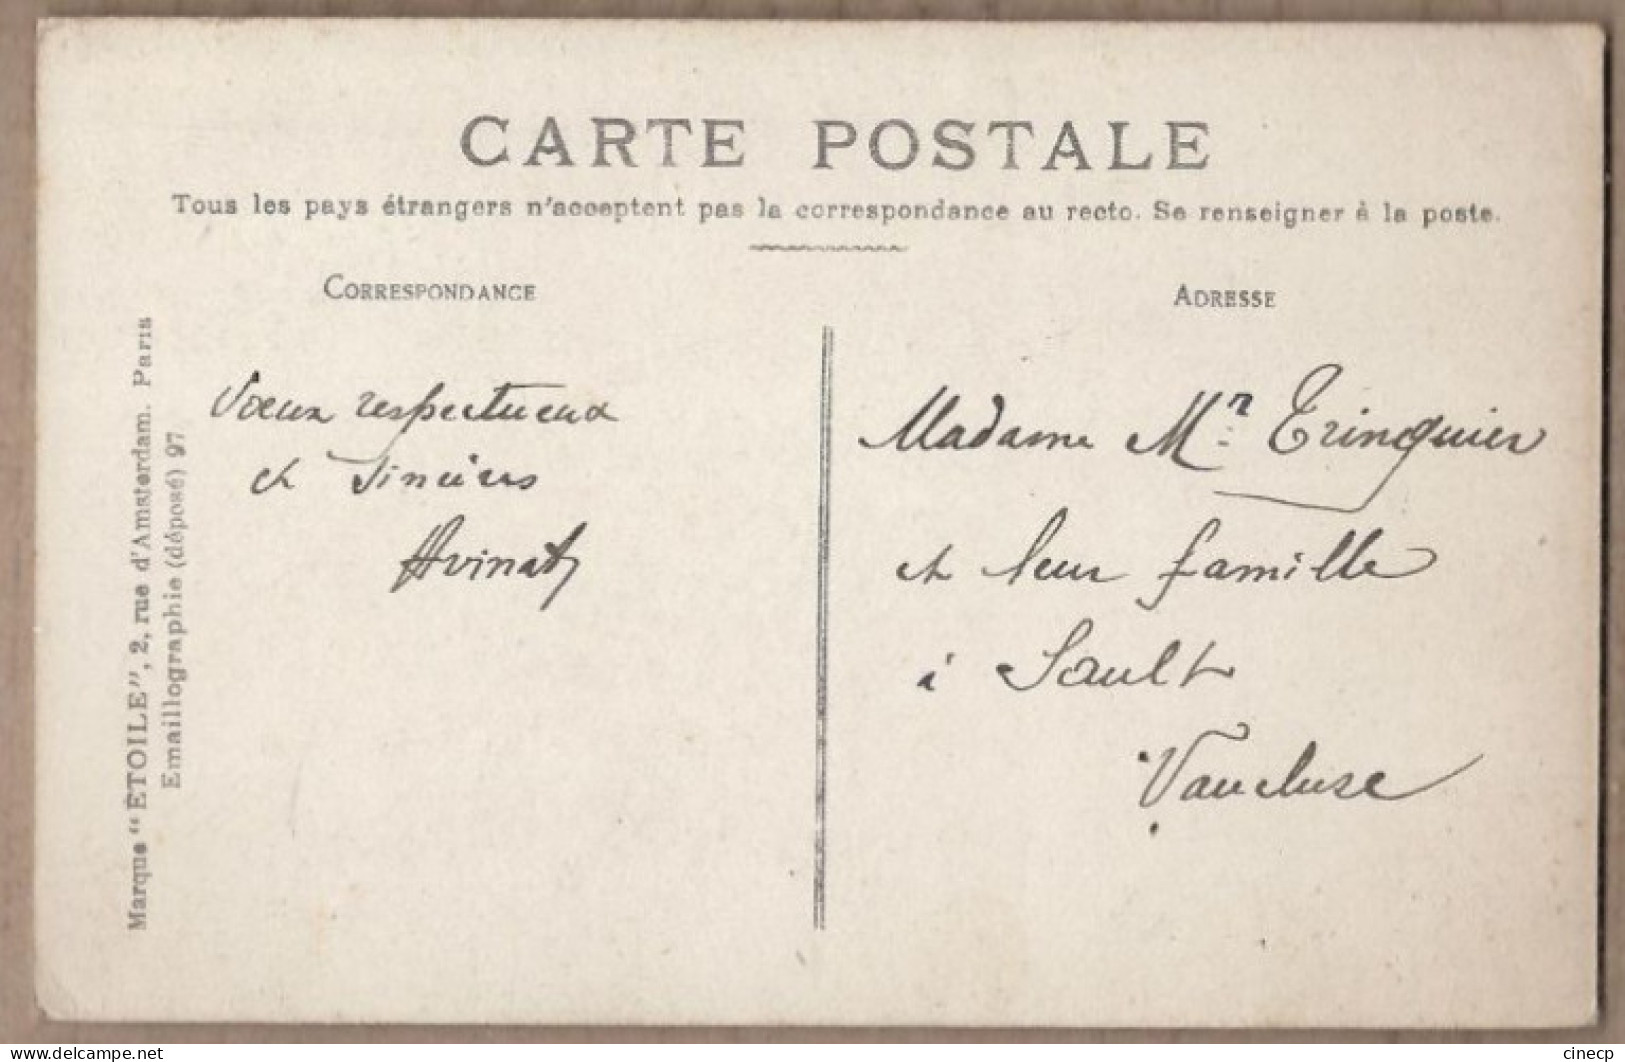 CARTE POSTALE
Tous les pays étrangers n'acceptent pas la correspondance au recto. Se renseigner à la poste.
CORRESPONDANCE
ADRESSE
Marque "ÉTOILE", 2, rue d'Amsterdam. Paris
Emaillographie (déposé) 97
Vœux respectueux
et sincères
Madame Mr Trinquier
et leur famille
à Sault
Vaucluse
www.delcampe.net
cinecp